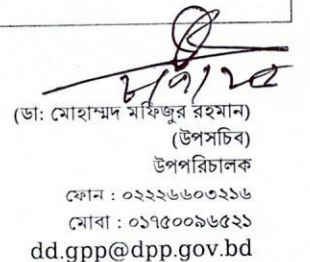 (ডা: মোহাম্মদ মফিজুর রহমান)
(উপসচিব)
উপপরিচালক
ফোন : ০২২২৬৬০৩২১৬
মোবা : ০১৭৫০০৯৬৫২১
dd.gpp@dpp.gov.bd